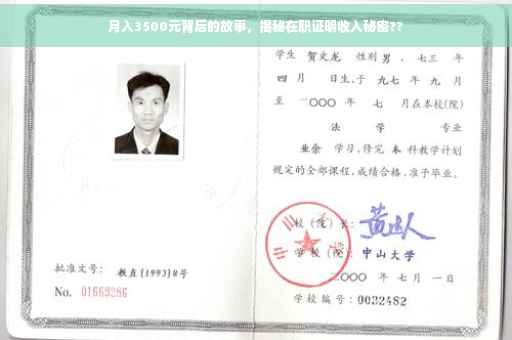 月入3500元背后的故事，揭秘在职证明收入秘密??
学生 贺文龙 性别 男 、七三 年
四 月 日生,于 九七 年 九 月
至 二〇〇〇 年 七 月在本校(院)
法 学 专业
业余 学习,修完 本 科教学计划
规定的全部课程,成绩合格,准予毕业。
校 (院) 长:
学 校 (院): 中山大学
二〇〇〇 年 七 月 一 日
批准文号: 教直[1993]8号
No. 01669286
学校编号: 0032482
中山大